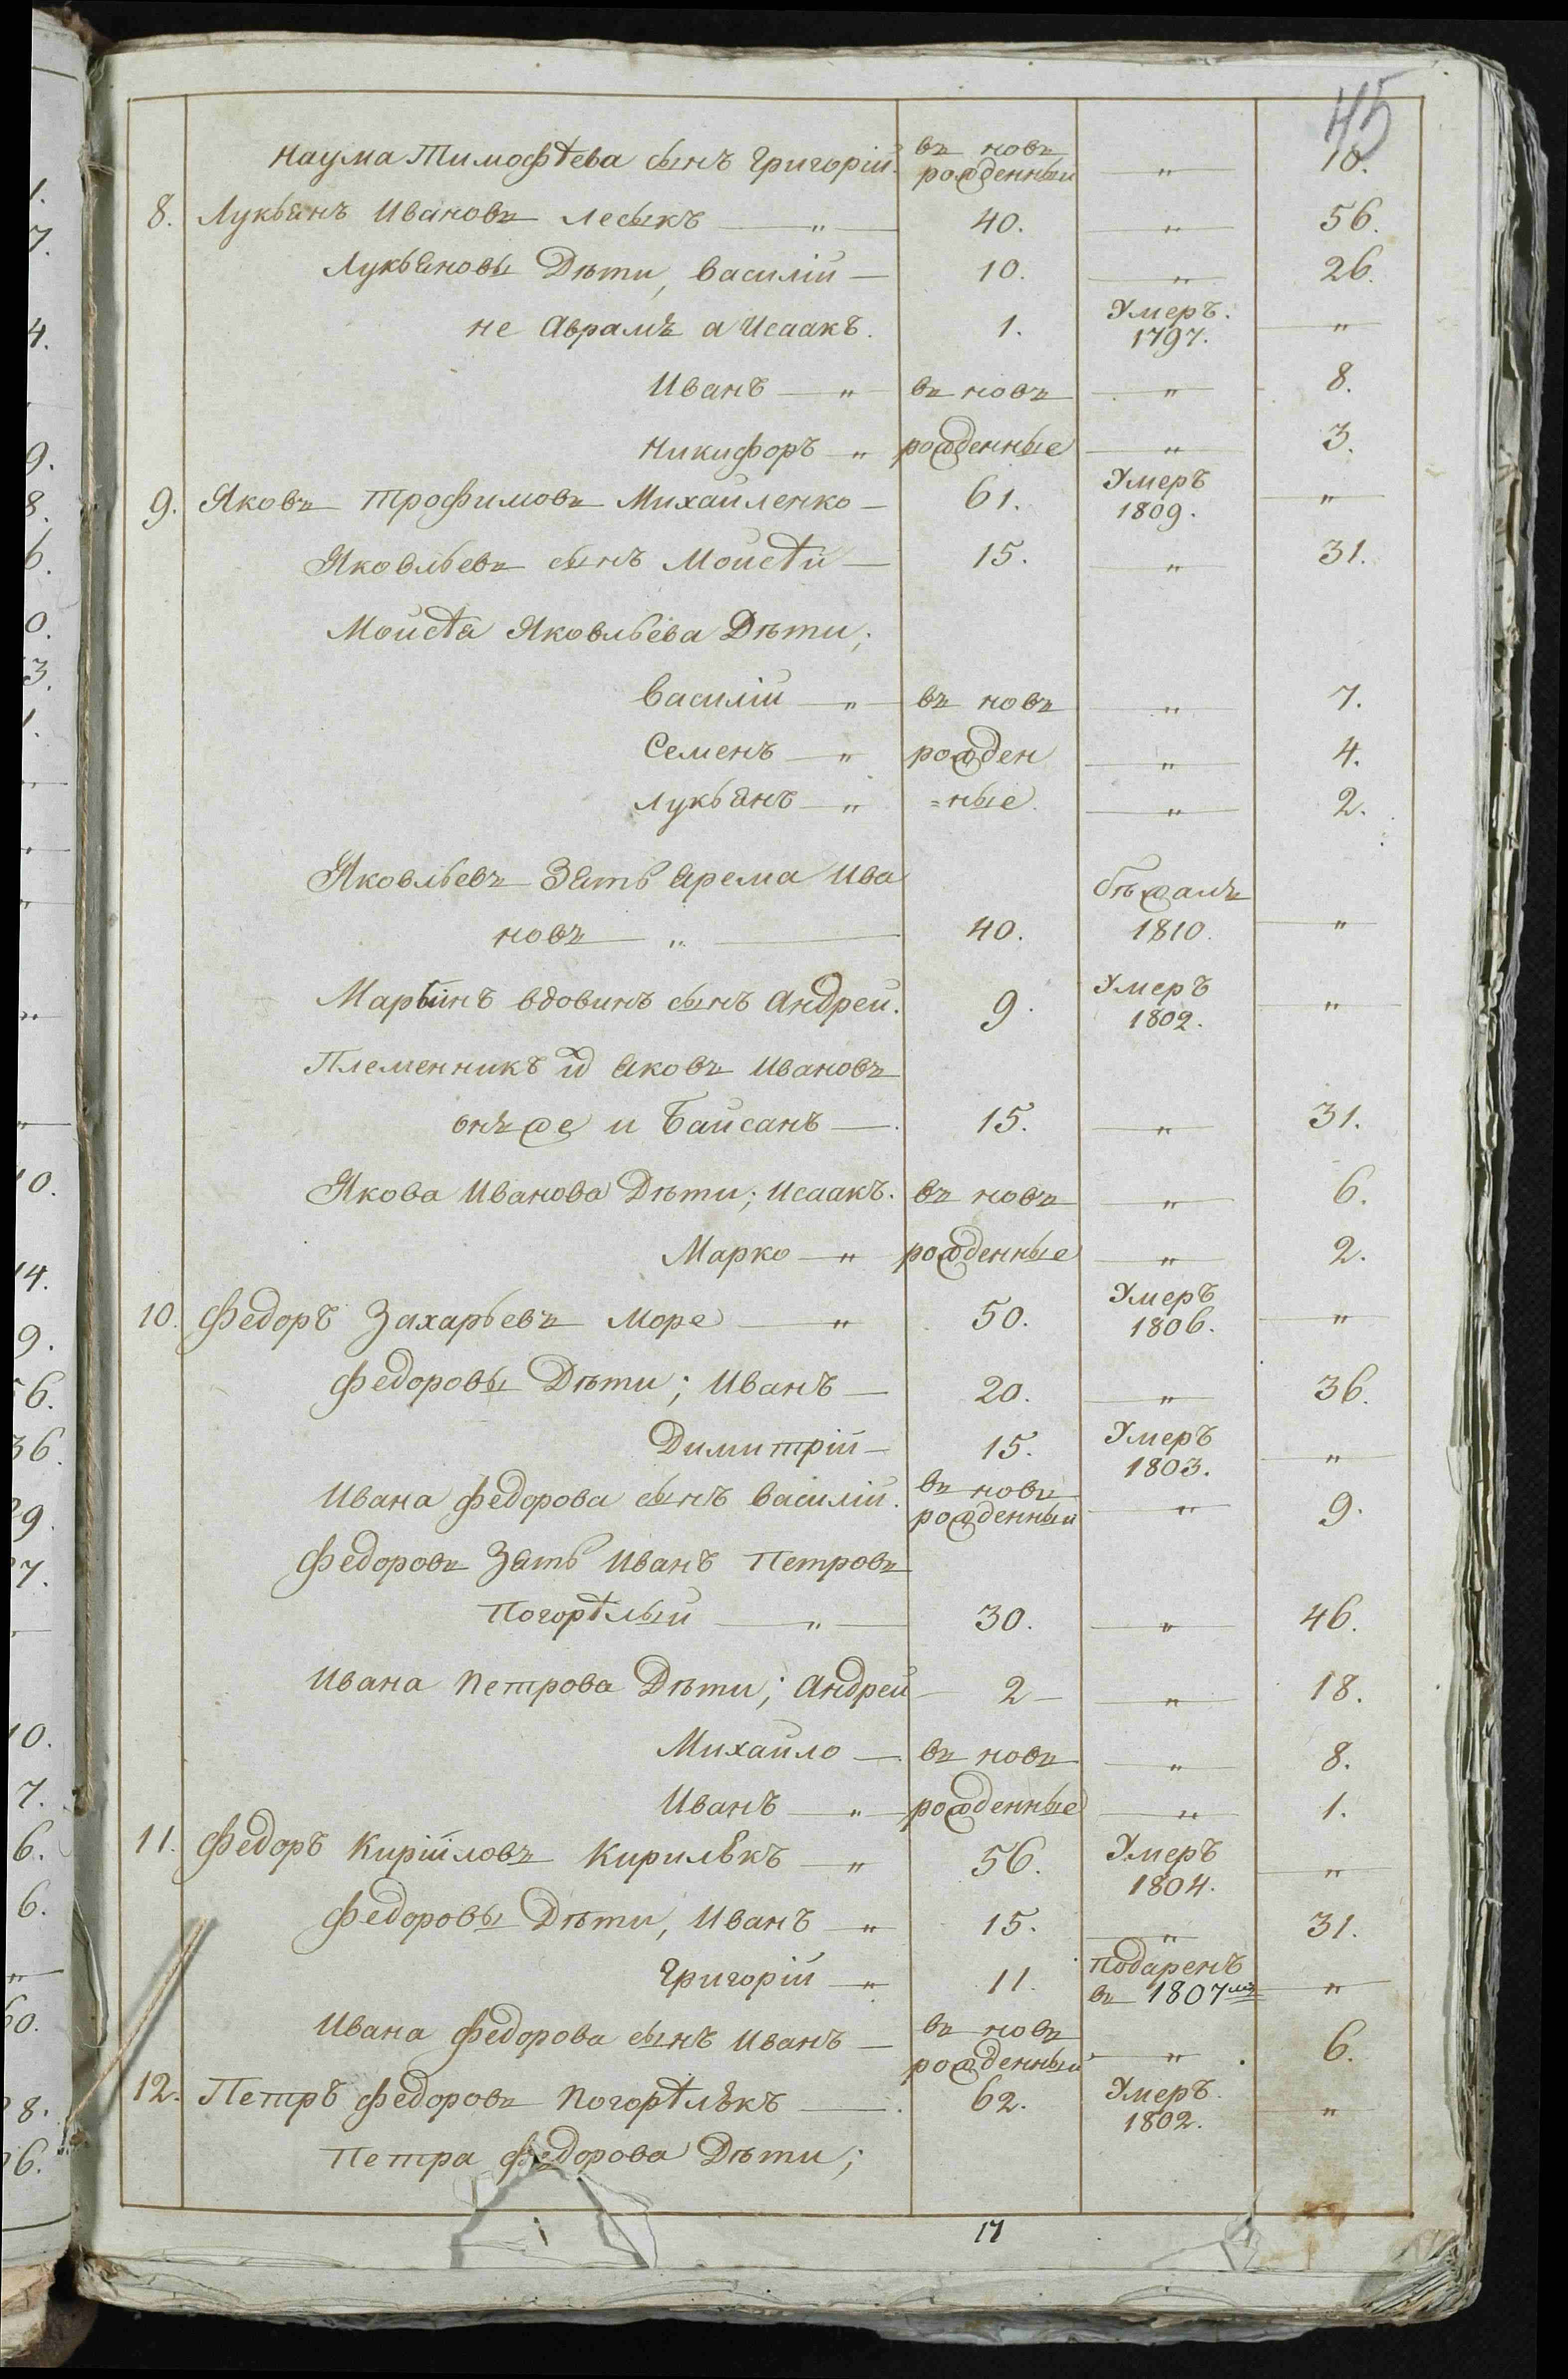 45
Наума Тимофѣева сынъ Григорій. въ новъ рожденный „ 10.
8. Лукьянъ Ивановъ Лесыкъ „ 40. „ 56.
Лукьяновы Дѣти, Василій 10. „ 26.
не Аврамъ а Исаакъ. 1. Умеръ. 1797. „
Иванъ „ въ новъ „ 8.
Никифоръ „ рожденные „ 3.
9. Яковъ Трофимовъ Михайленко 61. Умеръ 1809. „
Яковльевъ сынъ Моисѣй 15. „ 31.
Моисѣя Яковльева Дѣти;
Василій „ въ новъ „ 7.
Семенъ „ рожден „ 4.
Лукьянъ „ =ные „ 2.
Яковльевъ Зять Ярема Ива
новъ „ 40. бѣжалъ 1810. „
Марьинъ вдовинъ сынъ Андрей. 9. Умеръ 1802. „
Племенникъ Яковъ Ивановъ
онъ же и Байсанъ 15. „ 31.
Якова Иванова Дѣти; Исаакъ. въ новъ „ 6.
Марко „ рожденные „ 2.
10. Федоръ Захарьевъ Море „ 50. Умеръ 1806. „
Федоровы Дѣти; Иванъ 20. „ 36.
Димитрій 15. Умеръ 1803. „
Ивана Федорова сынъ Василій. въ новъ рожденный „ 9.
Федоровъ Зять Иванъ Петровъ
Погорѣлый „ 30. „ 46.
Ивана Петрова Дѣти; Андрей 2 „ 18.
Михайло въ новъ „ 8.
Иванъ „ рожденные „ 1.
11. Федоръ Кирійловъ Кирилѣкъ „ 56. Умеръ 1804. „
Федоровы Дѣти, Иванъ „ 15. „ 31.
Григорій „ 11. подаренъ въ 1807мъ „
Ивана Федорова сынъ Иванъ въ новъ рожденный „ 6.
12. Петръ Федоровъ Погорѣлѣкъ 62. Умеръ. 1802. „
Петра Федорова Дѣти;
17